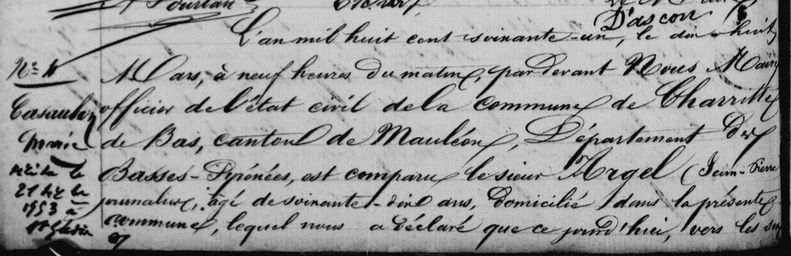 D'ascon
L'an mil huit cent soixante-un, le dix huit
Nº 4
Mars, à neuf heures du matin, par devant Nous Maire
Casaubon
officier de l'état civil de la commune de Charritte
Marie
de Bas, canton de Mauléon, Département des
décédée le
Basses-Pyrénées, est comparu le sieur Argel (Jean-Pierre
21
journalier, âgé de soixante-dix ans, domicilié dans la présente
1953 à
commune, lequel nous a déclaré que ce jourd'hui, vers les